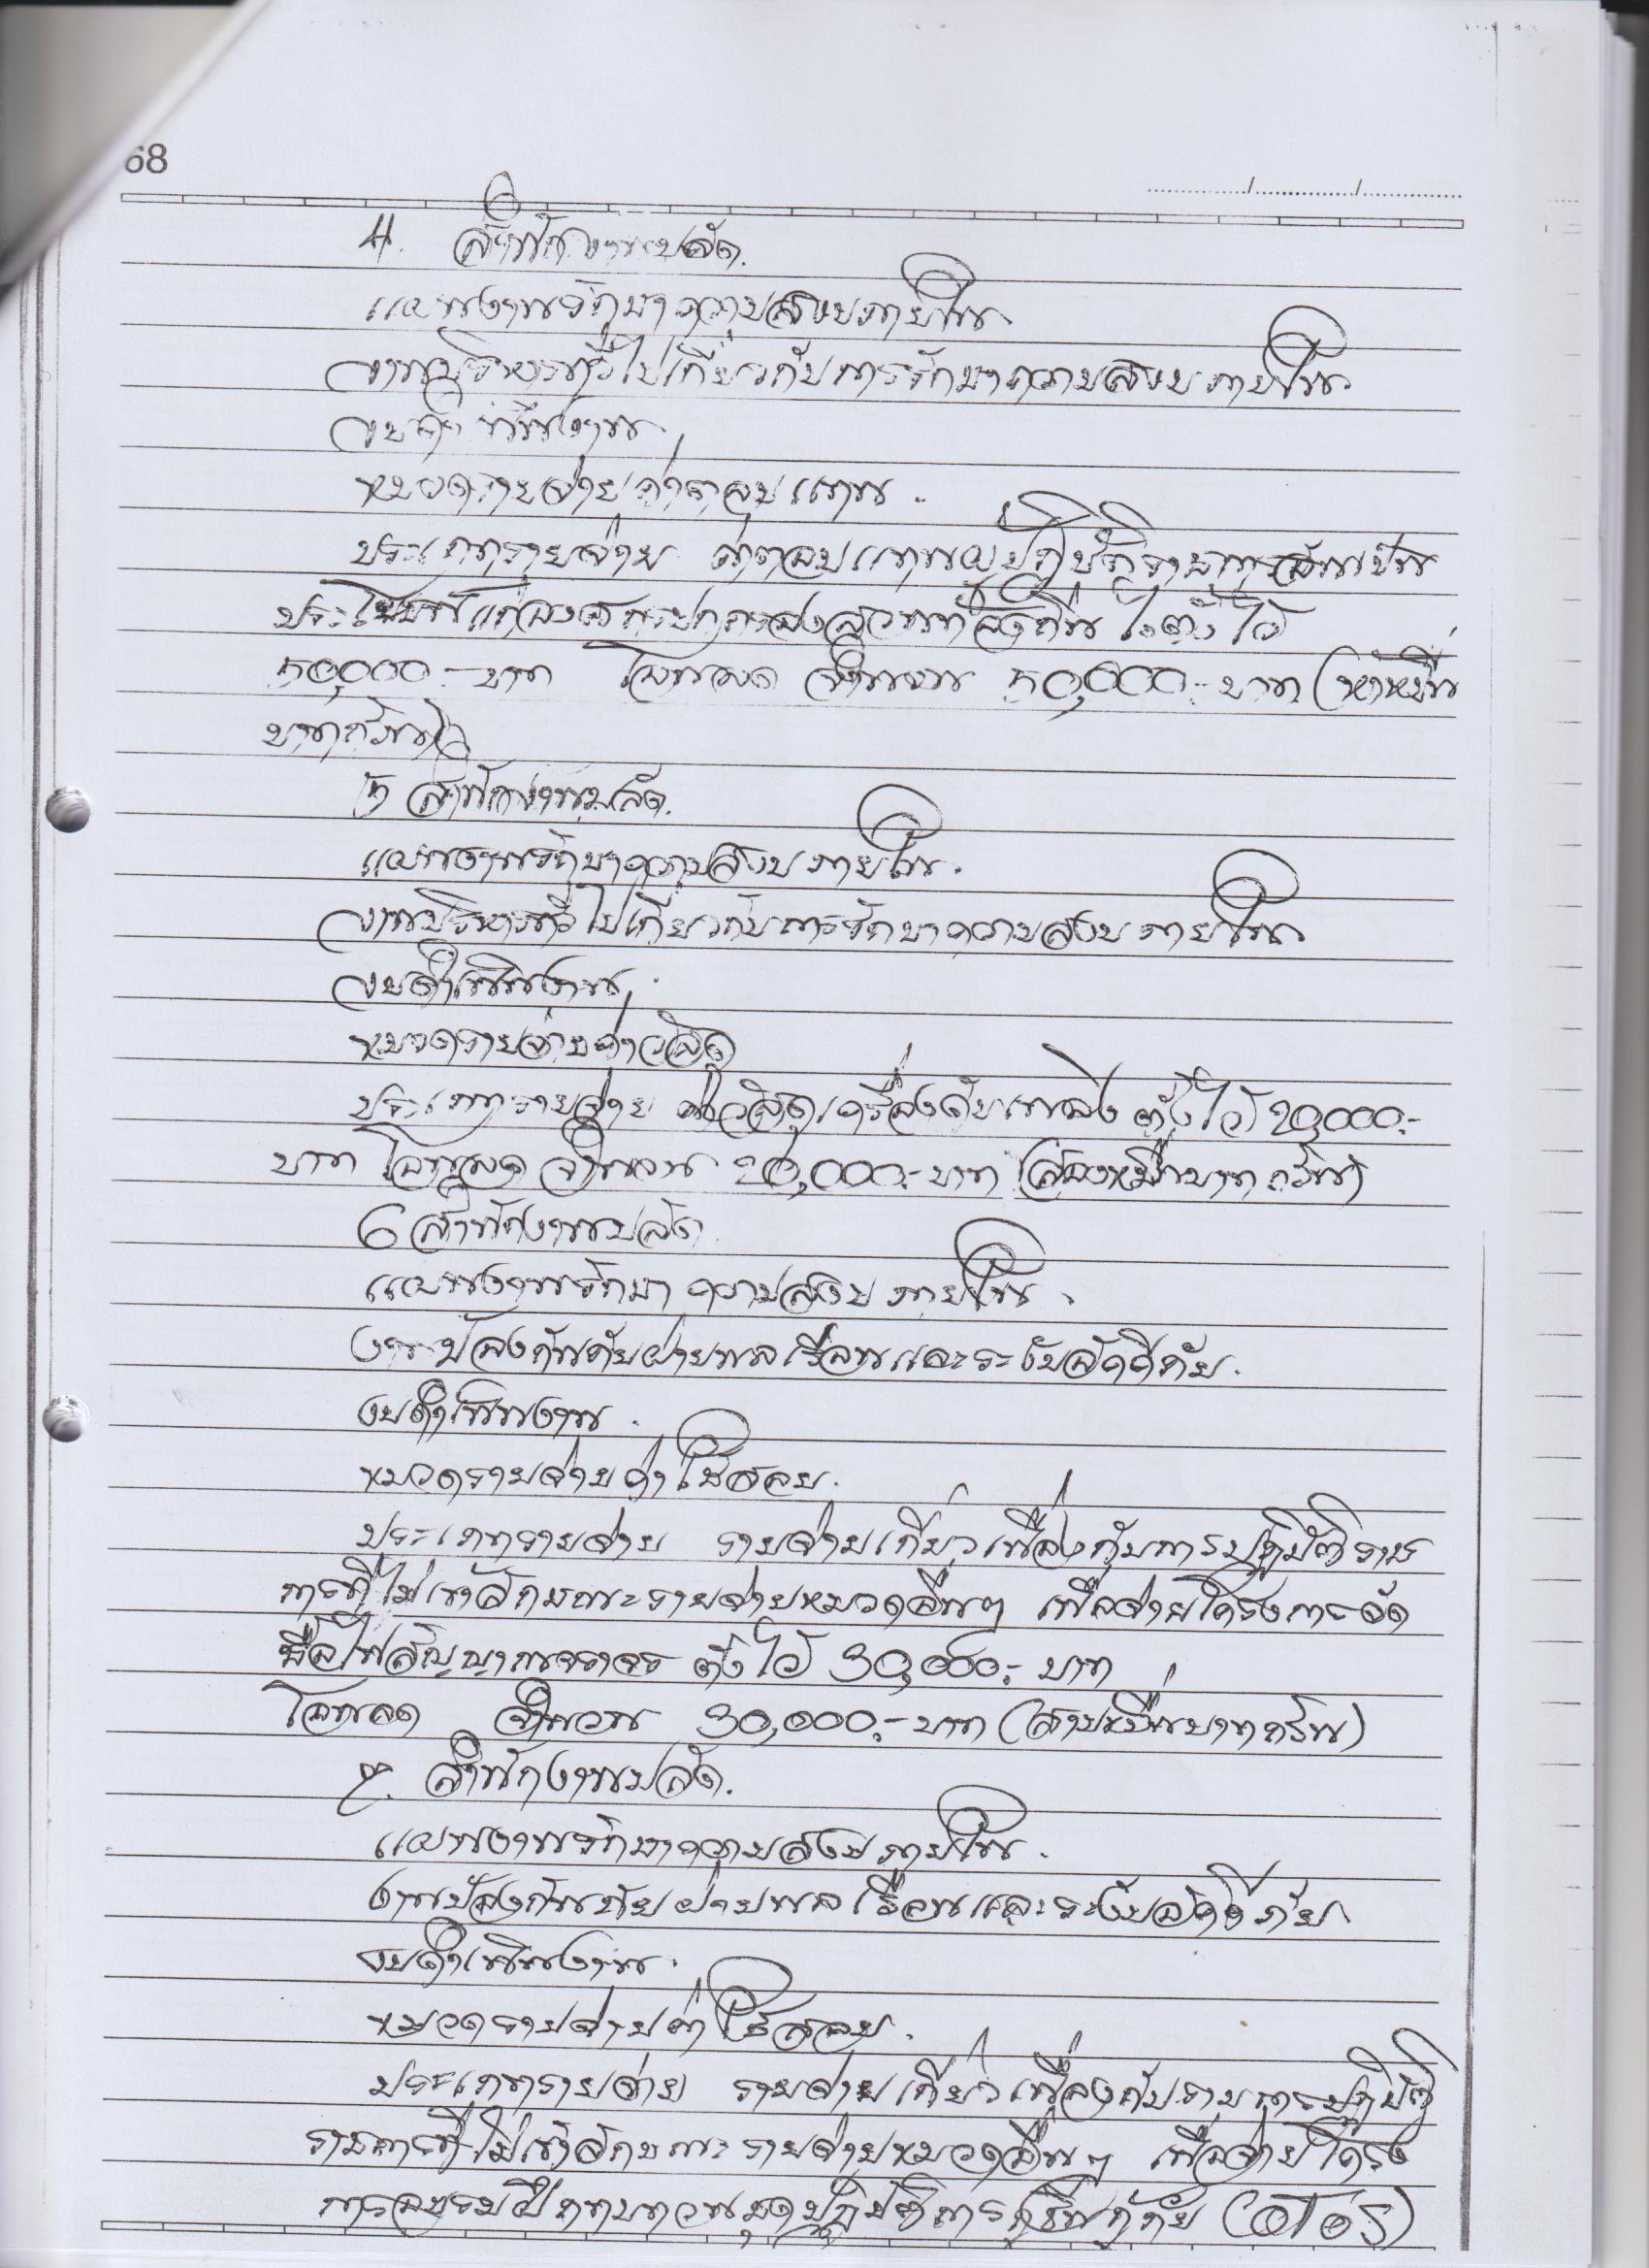 68
4. สำนักงานปลัด.
แผนงานรักษาความสงบภายใน
งานบริหารทั่วไปเกี่ยวกับการรักษาความสงบภายใน
งบดำเนินงาน
หมวดรายจ่ายค่าตอบแทน.
ประเภทรายจ่าย ค่าตอบแทนผู้ปฏิบัติราชการอันเป็น
ประโยชน์แก่องค์กรปกครองส่วนท้องถิ่น ตั้งไว้
50,000.- บาท โอนลด จำนวน 50,000.- บาท (ห้าหมื่น
บาทถ้วน)
5 สำนักงานปลัด.
แผนงานรักษาความสงบภายใน.
งานบริหารทั่วไปเกี่ยวกับการรักษาความสงบภายใน
งบดำเนินงาน.
หมวดรายจ่ายค่าวัสดุ
ประเภทรายจ่าย ค่าวัสดุเครื่องดับเพลิง ตั้งไว้ 20,000.-
บาท โอนลด จำนวน 20,000.- บาท (สองหมื่นบาทถ้วน)
6 สำนักงานปลัด.
แผนงานรักษาความสงบภายใน.
งานป้องกันภัยฝ่ายพลเรือนและระงับอัคคีภัย.
งบดำเนินงาน.
หมวดรายจ่ายค่าใช้สอย.
ประเภทรายจ่าย รายจ่ายเกี่ยวเนื่องกับการปฏิบัติราช
การที่ไม่เข้าลักษณะรายจ่ายหมวดอื่นๆ เพื่อจ่ายโครงการจัด
ซื้อไฟสัญญาณจราจร ตั้งไว้ 30,000.- บาท
โอนลด จำนวน 30,000.- บาท (สามหมื่นบาทถ้วน)
7. สำนักงานปลัด.
แผนงานรักษาความสงบภายใน.
งานป้องกันภัยฝ่ายพลเรือนและระงับอัคคีภัย
งบดำเนินงาน.
หมวดรายจ่ายค่าใช้สอย.
ประเภทรายจ่าย รายจ่ายเกี่ยวเนื่องกับการปฏิบัติ
ราชการที่ไม่เข้าลักษณะรายจ่ายหมวดอื่นๆ เพื่อจ่ายโครง
การอบรมฝึกทบทวนชุดปฏิบัติการกู้ชีพกู้ภัย (OTOS)